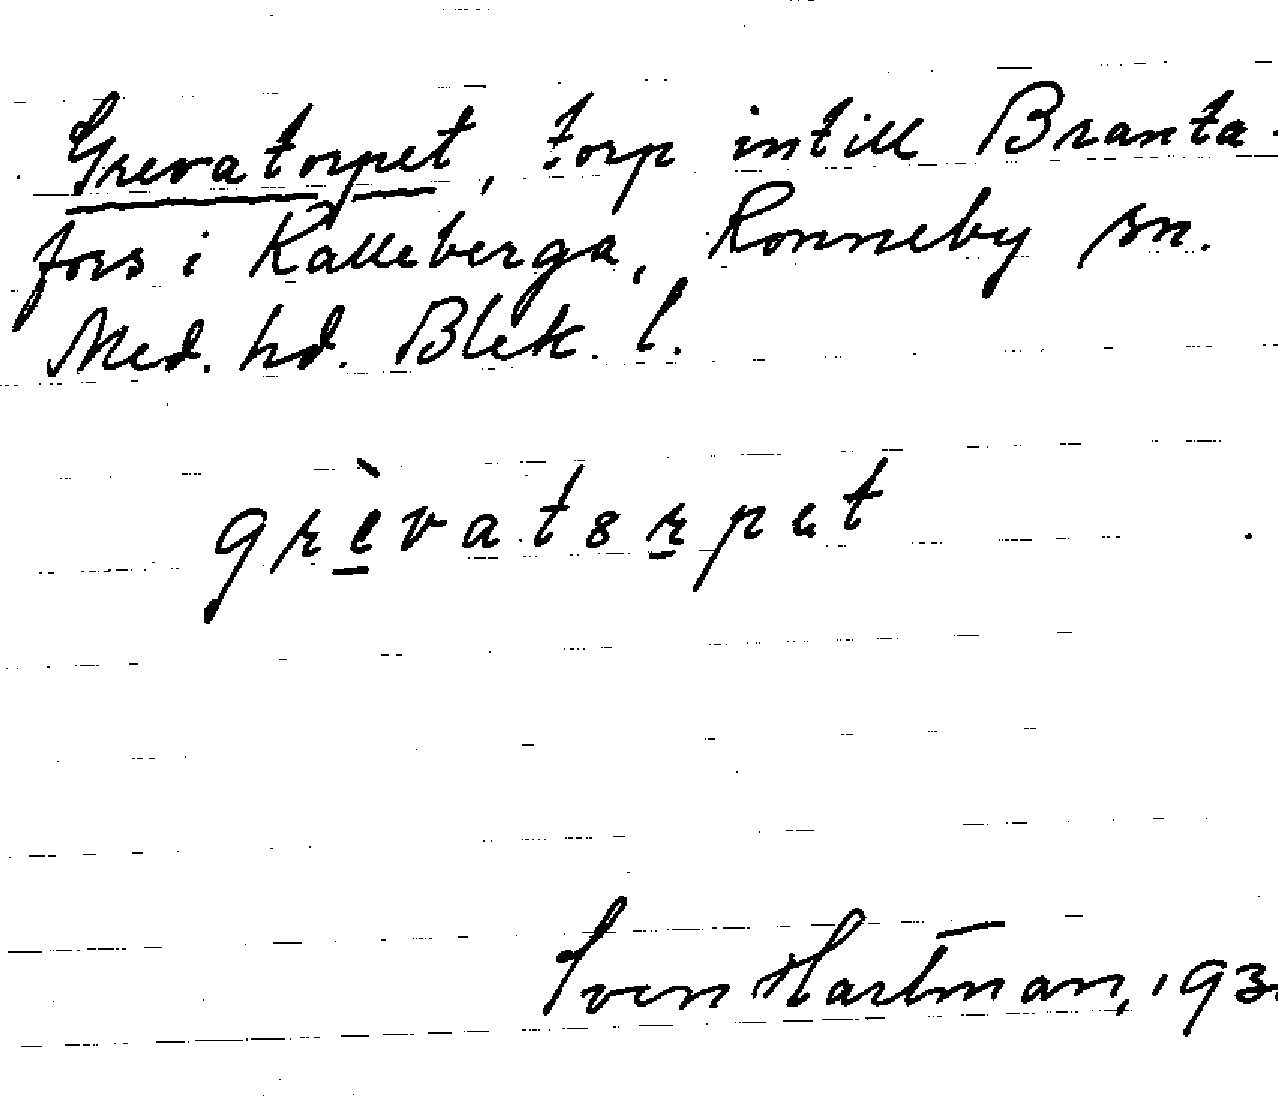 Grevatorpet, torp intill Branta-
fors i Kalleberga, Ronneby sn.
Med. hd. Blek. l.
grèvatorpet
Sven Hartman, 193